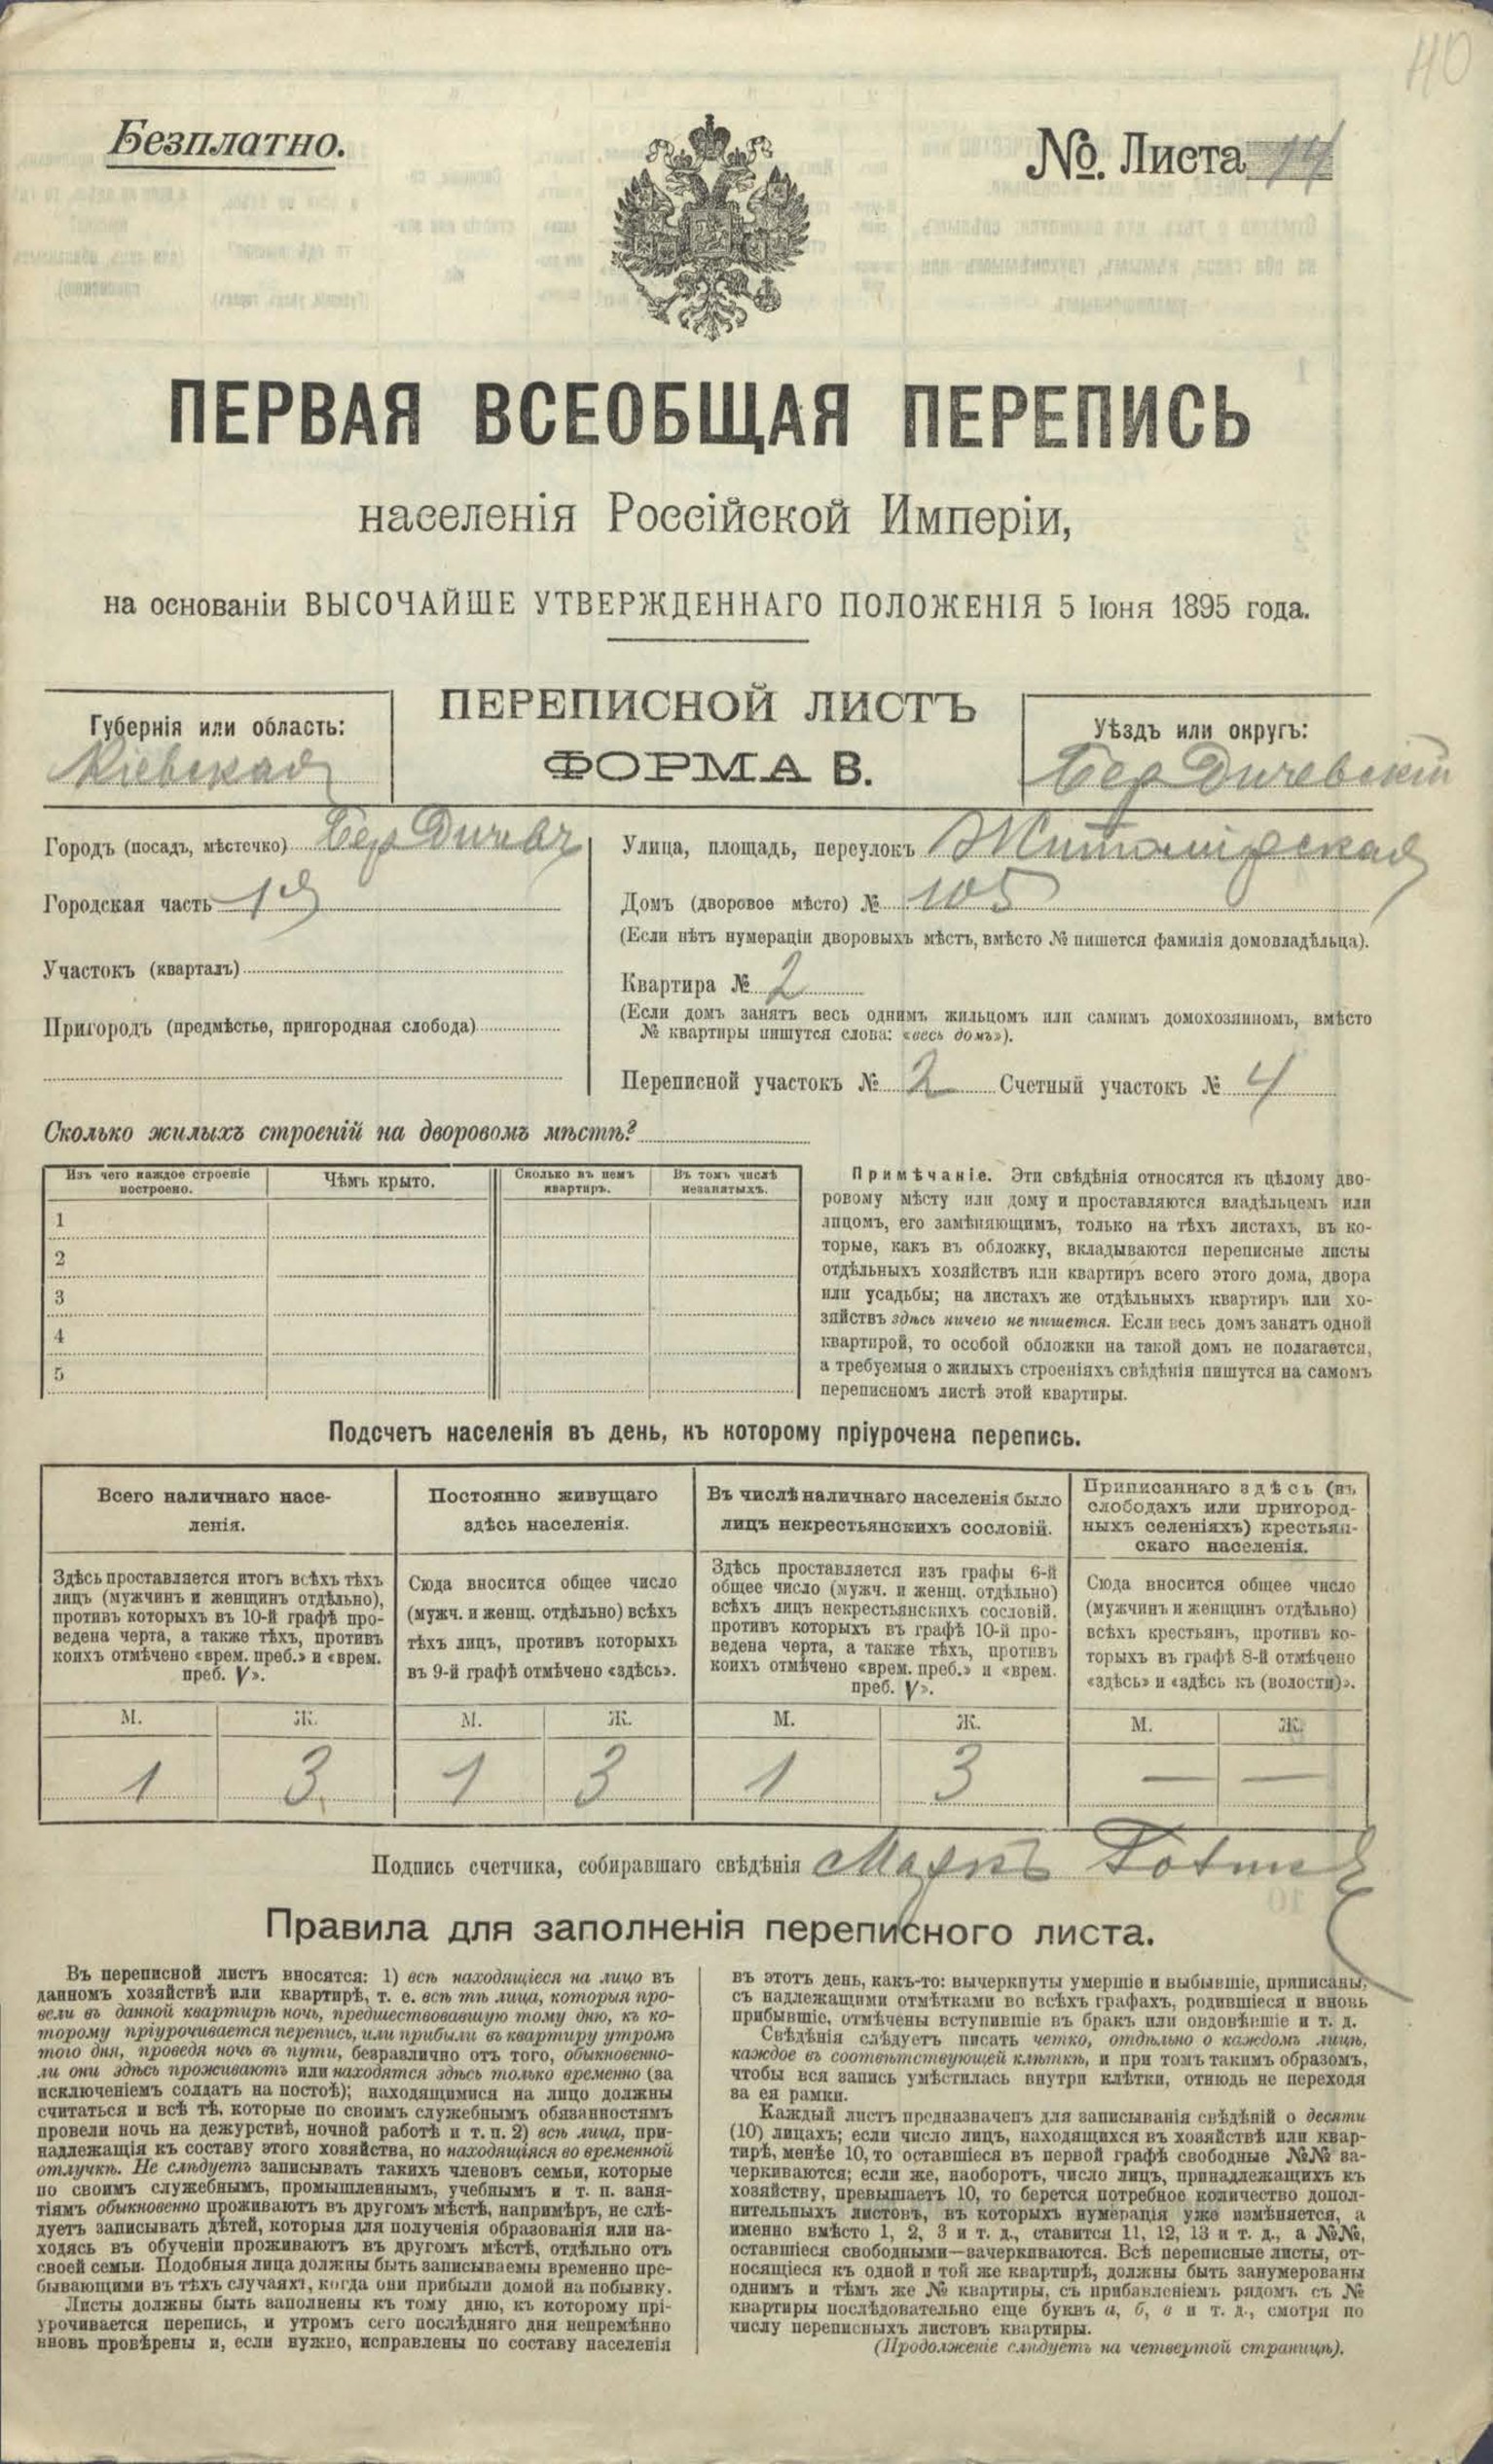 40
Безплатно.
№. Листа 14
ПЕРВАЯ ВСЕОБЩАЯ ПЕРЕПИСЬ
населенія Россійской Имперіи,
на основаніи ВЫСОЧАЙШЕ УТВЕРЖДЕННАГО ПОЛОЖЕНІЯ 5 Іюня 1895 года.
Губернія или область:
Кіевская
ПЕРЕПИСНОЙ ЛИСТЪ
ФОРМА В.
Уѣздъ или округъ:
Бердичевскій
Городъ (посадъ, мѣстечко) Бердичевъ
Городская часть 1я
Участокъ (кварталъ)
Пригородъ (предмѣстье, пригородная слобода)
Улица, площадь, переулокъ Житомірская
Домъ (дворовое мѣсто) № 105
(Если нѣтъ нумераціи дворовыхъ мѣстъ, вмѣсто № пишется фамилія домовладѣльца).
Квартира № 2
(Если домъ занятъ весь однимъ жильцомъ или самимъ домохозяиномъ, вмѣсто
№ квартиры пишутся слова: «весь домъ»).
Переписной участокъ № 2 Счетный участокъ № 4
Сколько жилыхъ строеній на дворовомъ мѣстѣ?
Изъ чего каждое строеніе
построено.
Чѣмъ крыто.
Сколько въ немъ
квартиръ.
Въ томъ числѣ
незанятыхъ.
1
2
3
4
5
Примѣчаніе. Эти свѣдѣнія относятся къ цѣлому дво-
ровому мѣсту или дому и проставляются владѣльцемъ или
лицомъ, его замѣняющимъ, только на тѣхъ листахъ, въ ко-
торые, какъ въ обложку, вкладываются переписные листы
отдѣльныхъ хозяйствъ или квартиръ всего этого дома, двора
или усадьбы; на листахъ же отдѣльныхъ квартиръ или хо-
зяйствъ здѣсь ничего не пишется. Если весь домъ занятъ одной
квартирой, то особой обложки на такой домъ не полагается,
а требуемыя о жилыхъ строеніяхъ свѣдѣнія пишутся на самомъ
переписномъ листѣ этой квартиры.
Подсчетъ населенія въ день, къ которому пріурочена перепись.
Всего наличнаго насе-
ленія.
Здѣсь проставляется итогъ всѣхъ тѣхъ
лицъ (мужчинъ и женщинъ отдѣльно),
противъ которыхъ въ 10-й графѣ про-
ведена черта, а также тѣхъ, противъ
коихъ отмѣчено «врем. преб.» и «врем.
преб. V».
М. Ж.
1 3
Постоянно живущаго
здѣсь населенія.
Сюда вносится общее число
(мужч. и женщ. отдѣльно) всѣхъ
тѣхъ лицъ, противъ которыхъ
въ 9-й графѣ отмѣчено «здѣсь».
М. Ж.
1 3
Въ числѣ наличнаго населенія было
лицъ некрестьянскихъ сословій.
Здѣсь проставляется изъ графы 6-й
общее число (мужч. и женщ. отдѣльно)
всѣхъ лицъ некрестьянскихъ сословій,
противъ которыхъ въ графѣ 10-й про-
ведена черта, а также тѣхъ, противъ
коихъ отмѣчено «врем. преб.» и «врем.
преб. V».
М. Ж.
1 3
Приписаннаго здѣсь (въ
слободахъ или пригород-
ныхъ селеніяхъ) крестьян-
скаго населенія.
Сюда вносится общее число
(мужчинъ и женщинъ отдѣльно)
всѣхъ крестьянъ, противъ ко-
торыхъ въ графѣ 8-й отмѣчено
«здѣсь» и «здѣсь къ (волости)».
М. Ж.
— —
Подпись счетчика, собиравшаго свѣдѣнія Маркъ
Правила для заполненія переписного листа.
Въ переписной листъ вносятся: 1) всѣ находящіеся на лицо въ
данномъ хозяйствѣ или квартирѣ, т. е. всѣ тѣ лица, которыя про-
вели въ данной квартирѣ ночь, предшествовавшую тому дню, къ ко-
торому пріурочивается перепись, или прибыли въ квартиру утромъ
того дня, проведя ночь въ пути, безразлично отъ того, обыкновенно-
ли они здѣсь проживаютъ или находятся здѣсь только временно (за
исключеніемъ солдатъ на постоѣ); находящимися на лицо должны
считаться и всѣ тѣ, которые по своимъ служебнымъ обязанностямъ
провели ночь на дежурствѣ, ночной работѣ и т. п. 2) всѣ лица, при-
надлежащія къ составу этого хозяйства, но находящіяся во временной
отлучкѣ. Не слѣдуетъ записывать такихъ членовъ семьи, которые
по своимъ служебнымъ, промышленнымъ, учебнымъ и т. п. заня-
тіямъ обыкновенно проживаютъ въ другомъ мѣстѣ, напримѣръ, не слѣ-
дуетъ записывать дѣтей, которыя для полученія образованія или на-
ходясь въ обученіи проживаютъ въ другомъ мѣстѣ, отдѣльно отъ
своей семьи. Подобныя лица должны быть записываемы временно пре-
бывающими въ тѣхъ случаяхъ, когда они прибыли домой на побывку.
Листы должны быть заполнены къ тому дню, къ которому прі-
урочивается перепись, и утромъ сего послѣдняго дня непремѣнно
вновь провѣрены и, если нужно, исправлены по составу населенія
въ этотъ день, какъ-то: вычеркнуты умершіе и выбывшіе, приписаны,
съ надлежащими отмѣтками во всѣхъ графахъ, родившіеся и вновь
прибывшіе, отмѣчены вступившіе въ бракъ или овдовѣвшіе и т. д.
Свѣдѣнія слѣдуетъ писать четко, отдѣльно о каждомъ лицѣ,
каждое въ соотвѣтствующей клѣткѣ, и при томъ такимъ образомъ,
чтобы вся запись умѣстилась внутри клѣтки, отнюдь не переходя
за ея рамки.
Каждый листъ предназначенъ для записыванія свѣдѣній о десяти
(10) лицахъ; если число лицъ, находящихся въ хозяйствѣ или квар-
тирѣ, менѣе 10, то оставшіеся въ первой графѣ свободные №№ за-
черкиваются; если же, наоборотъ, число лицъ, принадлежащихъ къ
хозяйству, превышаетъ 10, то берется потребное количество допол-
нительныхъ листовъ, въ которыхъ нумерація уже измѣняется, а
именно вмѣсто 1, 2, 3 и т. д., ставится 11, 12, 13 и т. д., а №№,
оставшіеся свободными—зачеркиваются. Всѣ переписные листы, от-
носящіеся къ одной и той же квартирѣ, должны быть занумерованы
однимъ и тѣмъ же № квартиры, съ прибавленіемъ рядомъ съ №
квартиры послѣдовательно еще буквъ а, б, в и т. д., смотря по
числу переписныхъ листовъ квартиры.
(Продолженіе слѣдуетъ на четвертой страницѣ).